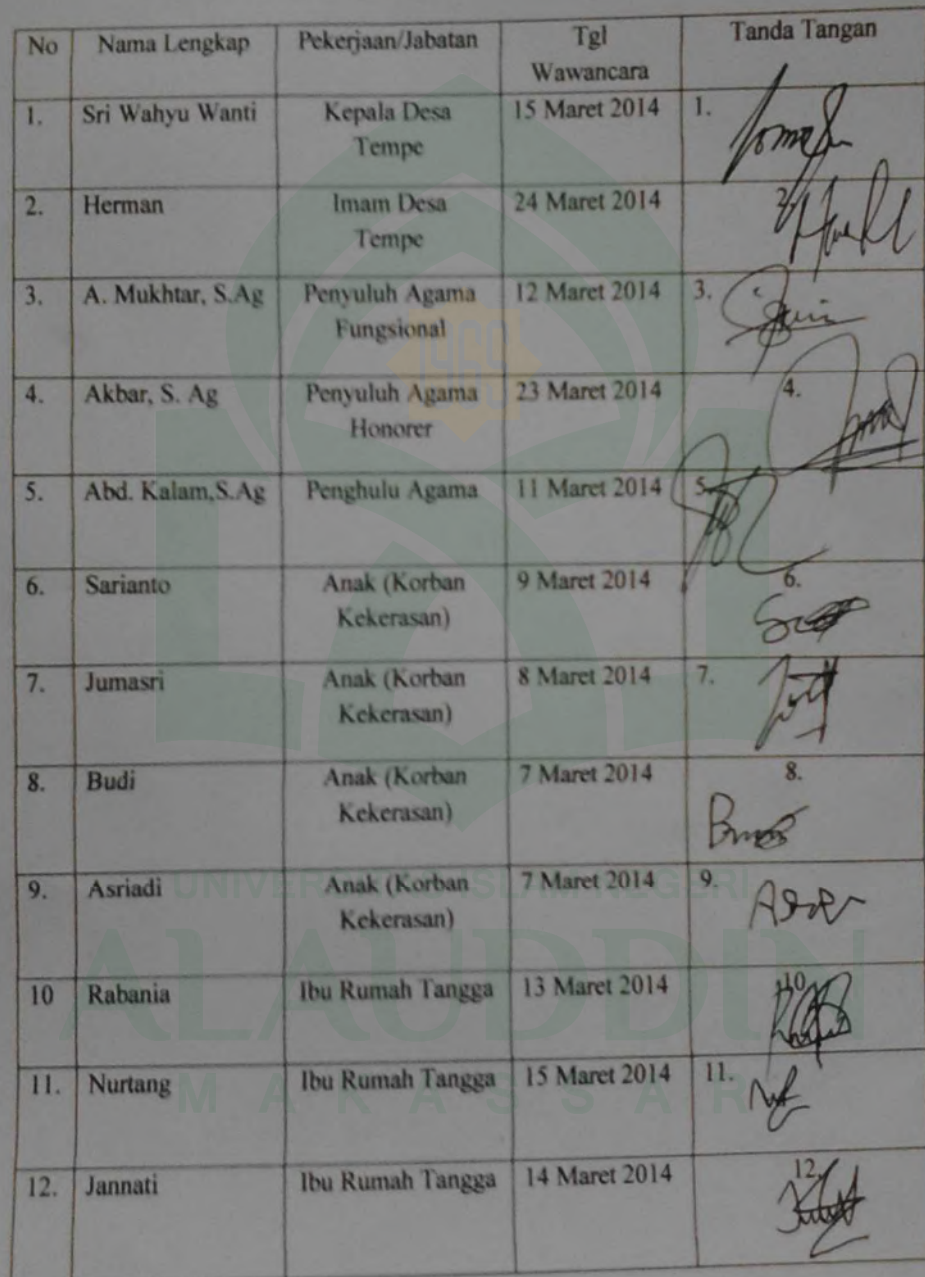 No Nama Lengkap Pekerjaan/Jabatan Tgl Wawancara Tanda Tangan
1. Sri Wahyu Wanti Kepala Desa Tempe 15 Maret 2014 1.
2. Herman Imam Desa Tempe 24 Maret 2014 2.
3. A. Mukhtar, S.Ag Penyuluh Agama Fungsional 12 Maret 2014 3.
4. Akbar, S. Ag Penyuluh Agama Honorer 23 Maret 2014 4.
5. Abd. Kalam,S.Ag Penghulu Agama 11 Maret 2014 5.
6. Sarianto Anak (Korban Kekerasan) 9 Maret 2014 6.
7. Jumasri Anak (Korban Kekerasan) 8 Maret 2014 7.
8. Budi Anak (Korban Kekerasan) 7 Maret 2014 8.
9. Asriadi Anak (Korban Kekerasan) 7 Maret 2014 9.
10 Rabania Ibu Rumah Tangga 13 Maret 2014 10
11. Nurtang Ibu Rumah Tangga 15 Maret 2014 11.
12. Jannati Ibu Rumah Tangga 14 Maret 2014 12.
1965
UNIVERSITAS ISLAM NEGERI
ALAUDDIN
MAKASSAR